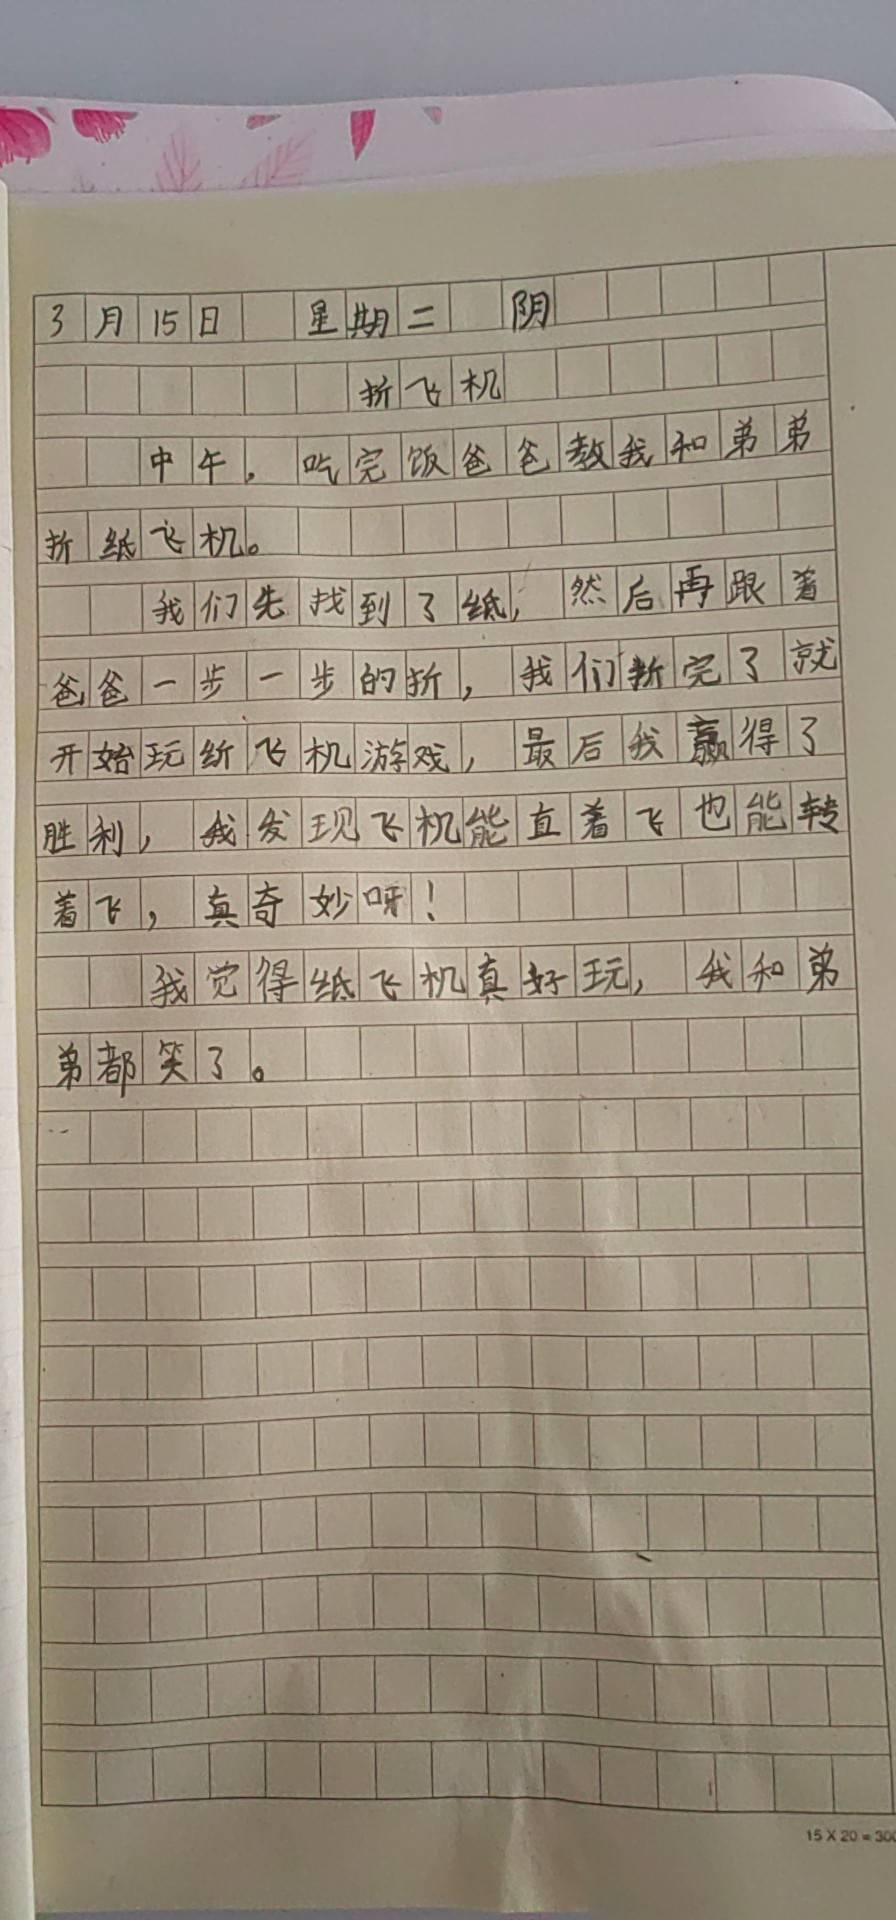 3月15日 星期二 阴
折飞机
中午，吃完饭爸爸教我和弟弟
折纸飞机。
我们先找到了纸，然后再跟着
爸爸一步一步的折，我们折完了就
开始玩纸飞机游戏，最后我赢得了
胜利，我发现飞机能直着飞也能转
着飞，真奇妙呀！
我觉得纸飞机真好玩，我和弟
弟都笑了。
15×20=300